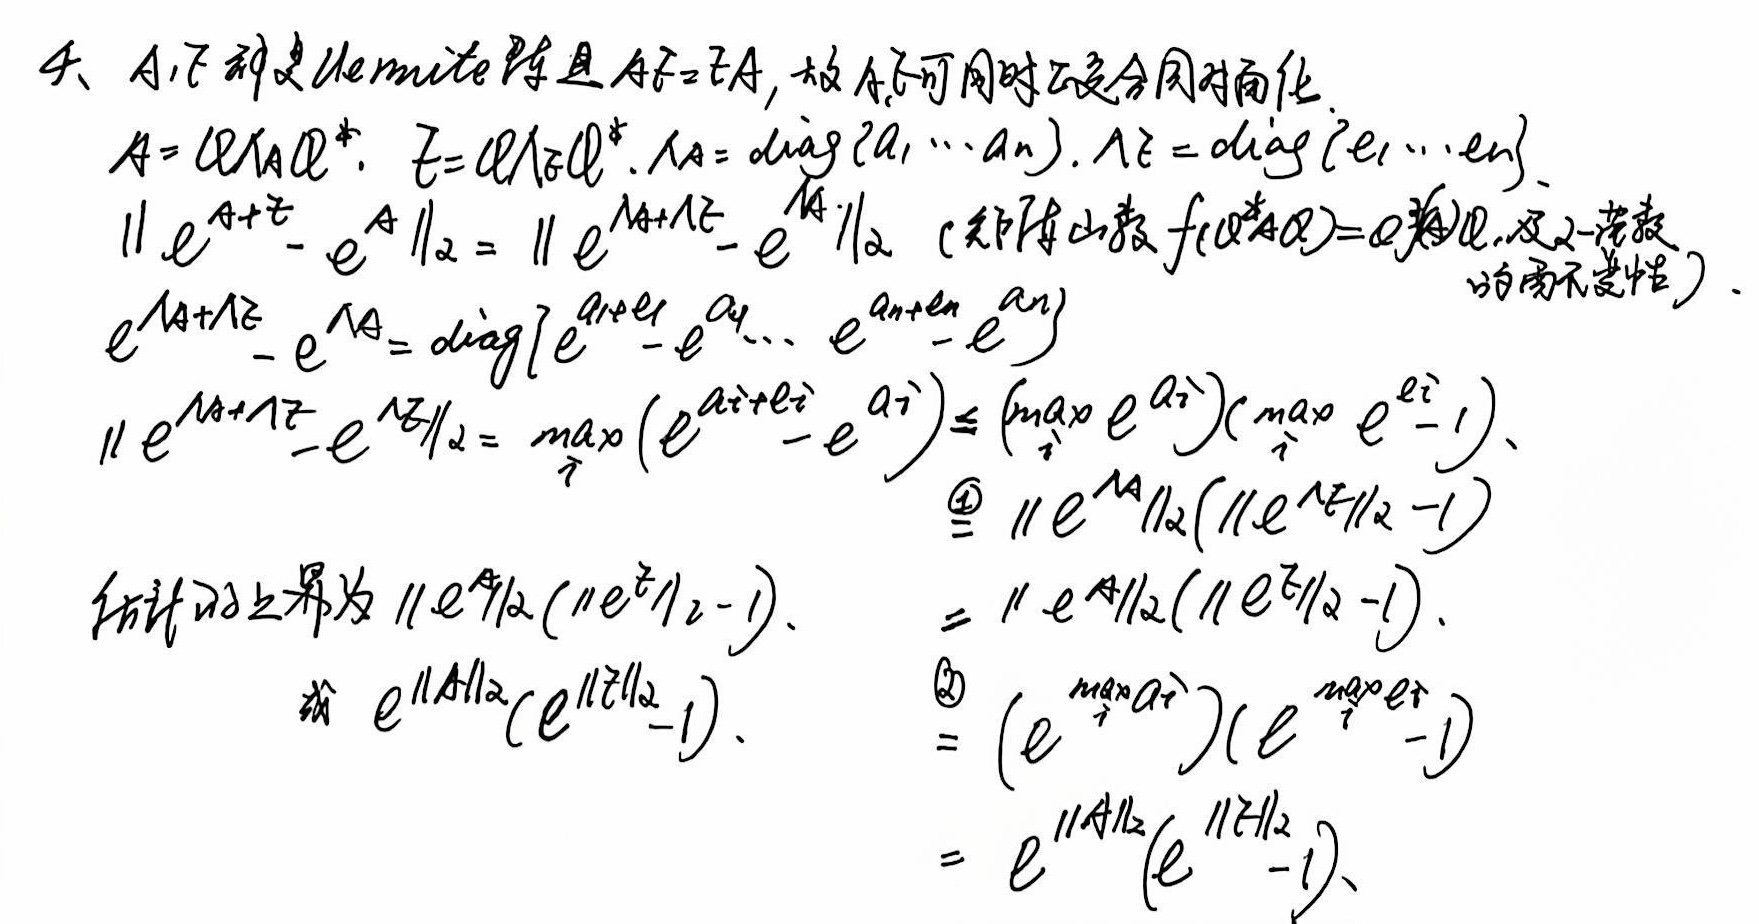 4、A,E 都是Hermite阵且 AE=EA, 故A,E可同时酉变合同对角化.
A=QΛ_AQ*. E=QΛ_EQ*. Λ_A=diag{a_1…a_n}. Λ_E=diag{e_1…e_n}.
‖e^{A+E}-e^A‖_2=‖e^{Λ_A+Λ_E}-e^{Λ_A}‖_2 (矩阵函数 f(Q*AQ)=Q*f(A)Q,及2-范数
的酉不变性).
e^{Λ_A+Λ_E}-e^{Λ_A}=diag{e^{a_1+e_1}-e^{a_1}… e^{a_n+e_n}-e^{a_n}}
‖e^{Λ_A+Λ_E}-e^{Λ_E}‖_2=max_i(e^{a_i+e_i}-e^{a_i})≤(max_i e^{a_i})(max_i e^{e_i}-1).
①= ‖e^{Λ_A}‖_2(‖e^{Λ_E}‖_2-1)
估计的上界为‖e^A‖_2(‖e^E‖_2-1). = ‖e^A‖_2(‖e^E‖_2-1).
或 e^{‖A‖_2}(e^{‖E‖_2}-1). ②= (e^{max_i a_i})(e^{max_i e_i}-1)
= e^{‖A‖_2}(e^{‖E‖_2}-1).